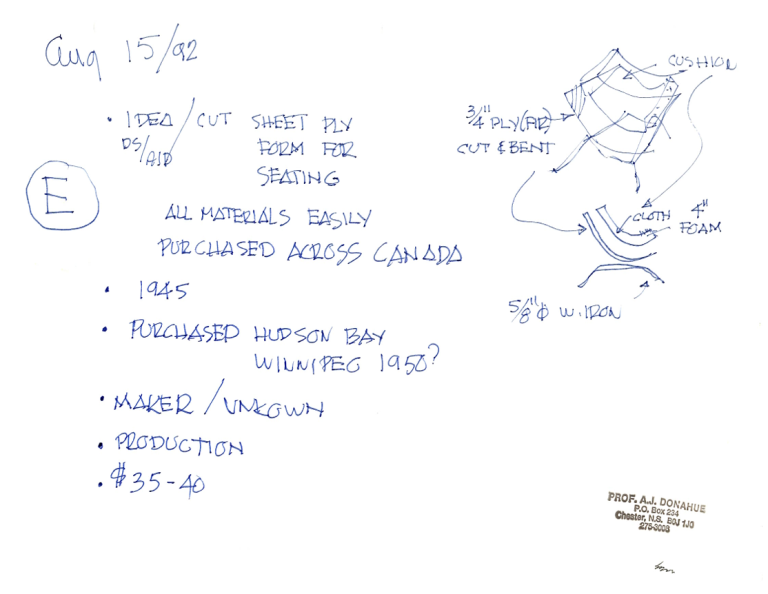 Aug 15/92
• IDEA / CUT SHEET PLY
DS/AID FORM FOR
SEATING
E
ALL MATERIALS EASILY
PURCHASED ACROSS CANADA
• 1945
• PURCHASED HUDSON BAY
WINNIPEG 1950?
• MAKER / UNKOWN
• PRODUCTION
• $35-40
CUSHION
3/4" PLY (FIR)
CUT & BENT
CLOTH 4"
FOAM
5/8" Φ W. IRON
PROF. A.J. DONAHUE
P.O. Box 234
Chester, N.S. B0J 1J0
275-3003